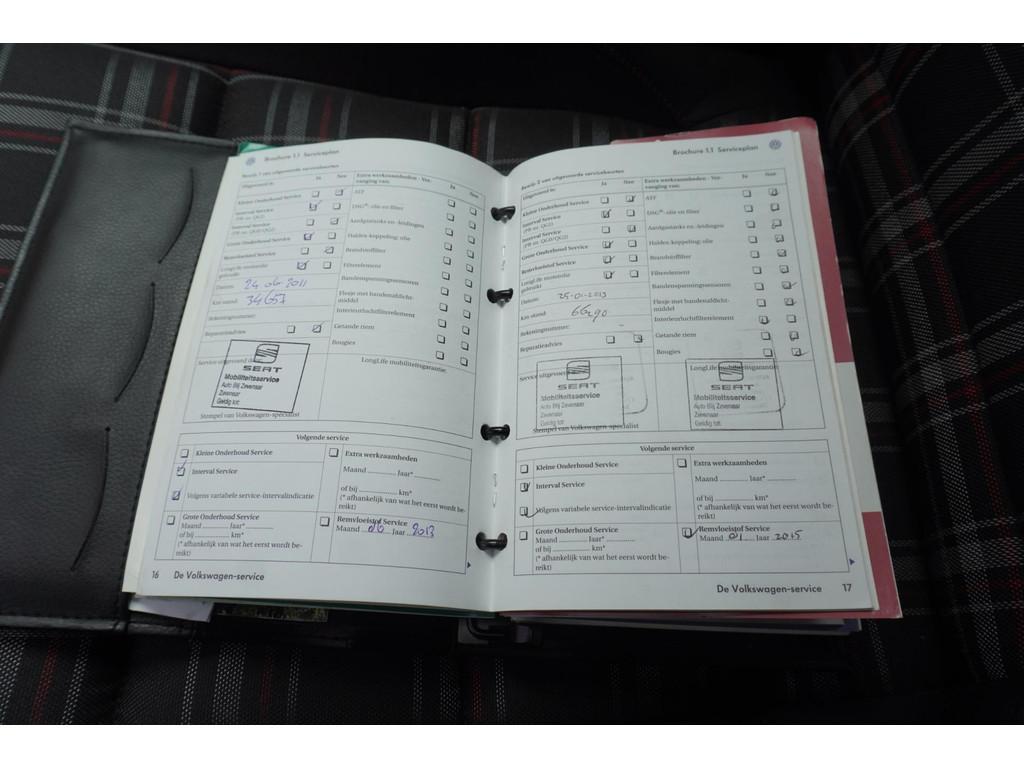 Brochure 1.1 Serviceplan
Bewijs 1 van uitgevoerde servicebeurten
Uitgevoerd is: Ja Nee
Kleine Onderhoud Service
Interval Service
(PR-nr. QG1)
Interval Service
(PR-nr. QG0/QG2)
Grote Onderhoud Service
Remvloeistof Service
LongLife motorolie
gebruikt
Datum: 24 06 2011
Km-stand: 34657
Rekeningnummer:
Reparatieadvies
Extra werkzaamheden - Ver-
vanging van: Ja Nee
ATF
DSG®: olie en filter
Aardgastanks en -leidingen
Haldex-koppeling: olie
Brandstoffilter
Filterelement
Bandenspanningssensoren
Flesje met bandenafdicht-
middel
Interieurluchtfilterelement
Getande riem
Bougies
Service uitgevoerd door:
SEAT
Mobiliteitsservice
Auto Blij Zevenaar
Zevenaar
Geldig tot:
Stempel van Volkswagen-specialist
LongLife mobiliteitsgarantie:
Volgende service
Kleine Onderhoud Service
Interval Service
Volgens variabele service-intervalindicatie
Extra werkzaamheden
Maand ........... Jaar* ...........
of bij ........... km*
(* afhankelijk van wat het eerst wordt be-
reikt)
Grote Onderhoud Service
Maand ........... Jaar* ...........
of bij ........... km*
(* afhankelijk van wat het eerst wordt be-
reikt)
Remvloeistof Service
Maand 06 Jaar 2013
16 De Volkswagen-service
Brochure 1.1 Serviceplan
Bewijs 2 van uitgevoerde servicebeurten
Uitgevoerd is: Ja Nee
Kleine Onderhoud Service
Interval Service
(PR-nr. QG1)
Interval Service
(PR-nr. QG0/QG2)
Grote Onderhoud Service
Remvloeistof Service
LongLife motorolie
gebruikt
Datum: 25-01-2013
Km-stand: 66290
Rekeningnummer:
Reparatieadvies
Extra werkzaamheden - Ver-
vanging van: Ja Nee
ATF
DSG®: olie en filter
Aardgastanks en -leidingen
Haldex-koppeling: olie
Brandstoffilter
Filterelement
Bandenspanningssensoren
Flesje met bandenafdicht-
middel
Interieurluchtfilterelement
Getande riem
Bougies
Service uitgevoerd
SEAT
Mobiliteitsservice
Auto Blij Zevenaar
Zevenaar
Geldig tot:
Stempel van Volkswagen-specialist
LongLife mobiliteitsgarantie:
SEAT
Mobiliteitsservice
Auto Blij Zevenaar
Zevenaar
Geldig tot:
Volgende service
Kleine Onderhoud Service
Interval Service
Volgens variabele service-intervalindicatie
Extra werkzaamheden
Maand ........... Jaar* ...........
of bij ........... km*
(* afhankelijk van wat het eerst wordt be-
reikt)
Grote Onderhoud Service
Maand ........... Jaar* ...........
of bij ........... km*
(* afhankelijk van wat het eerst wordt be-
reikt)
Remvloeistof Service
Maand 01 Jaar 2015
De Volkswagen-service 17